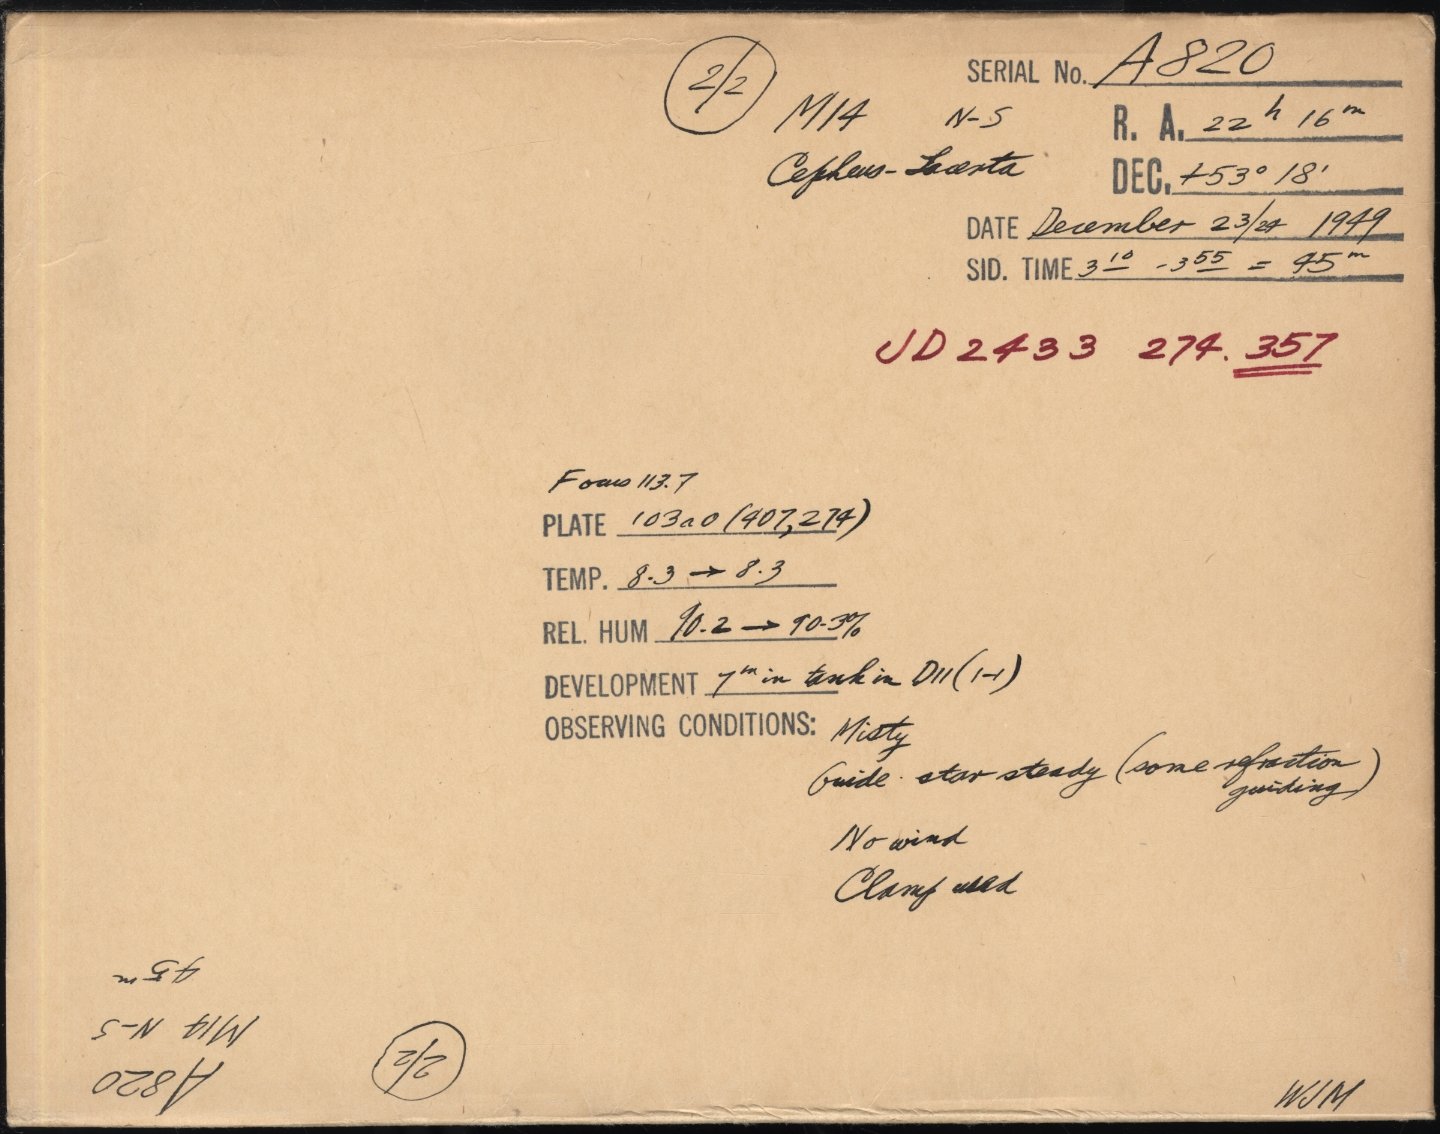 2/2
SERIAL No. A820
M14 N-S
R. A. 22h 16m
Cepheus-Lacerta
DEC. +53° 18'
DATE December 23/24 1949
SID. TIME 3 10 - 3 55 = 45m
JD 2433 274.357
Focus 113.7
PLATE 103a0 (407,274)
TEMP. 8.3 → 8.3
REL. HUM 90.2 → 90.3%
DEVELOPMENT 7m in tank in D11 (1-1)
OBSERVING CONDITIONS: Misty
Guide star steady (some refraction
guiding)
No wind
Clamp used
A820
M14 N-S
45m
2/2
WJM